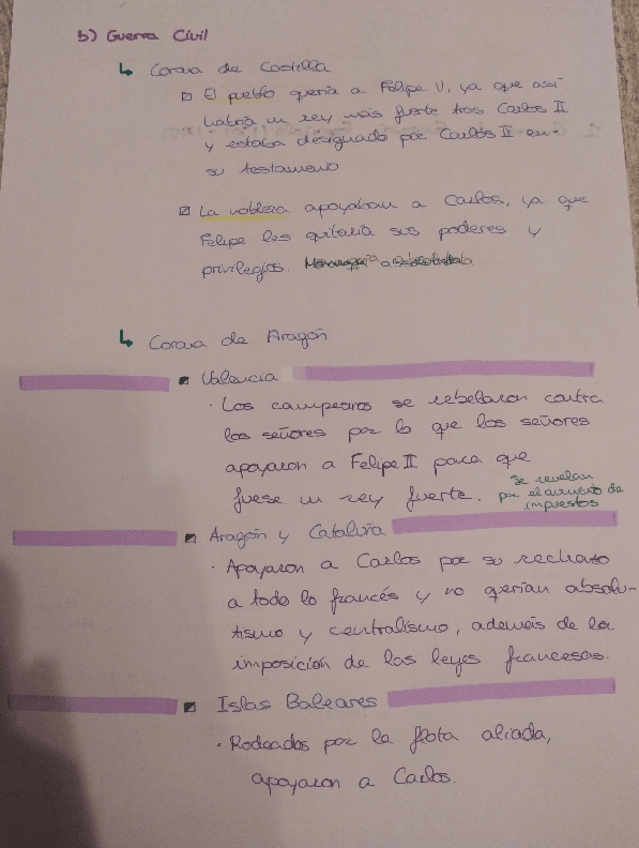 b) Guerra Civil
↳ Corona de Castilla
El pueblo quería a Felipe V, ya que así
habría un rey más fuerte tras Carlos II
y estaba designado por Carlos II en
su testamento
La nobleza apoyaban a Carlos, ya que
Felipe les quitaría sus poderes y
privilegios.
↳ Corona de Aragón
Valencia
· Los campesinos se rebelaron contra
los señores por lo que los señores
apoyaron a Felipe II para que
fuese un rey fuerte. se revelan
por el aumento de
impuestos
Aragón y Cataluña
· Apoyaron a Carlos por su rechazo
a todo lo francés y no querían absolu-
tismo y centralismo, además de la
imposición de las leyes francesas.
Islas Baleares
· Rodeados por la flota aliada,
apoyaron a Carlos.